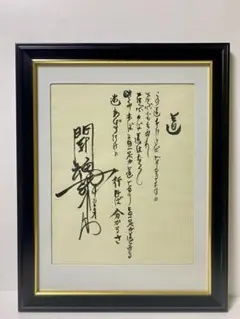 道
この道を行けばどうなるものか
危ぶむなかれ
危ぶめば道はなし
踏み出せばその一足が道となりその一足が道となる
迷わず行けよ
行けば分かるさ
闘魂